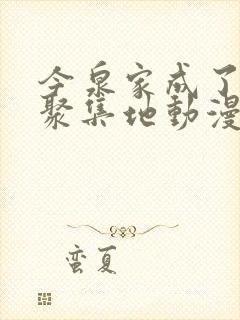 今泉家成了
聚集地動漫
蛮夏